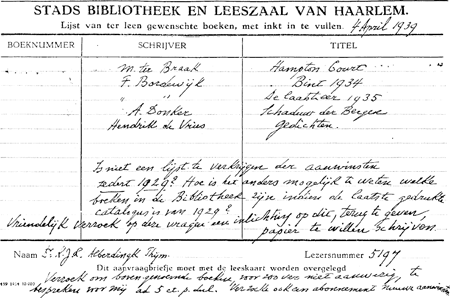 STADS BIBLIOTHEEK EN LEESZAAL VAN HAARLEM.
Lijst van ter leen gewenschte boeken, met inkt in te vullen. 4 April 1939
BOEKNUMMER SCHRIJVER TITEL
M. ter Braak Hampton Court
F. Bordewijk Bint 1934
" " De laatste eer 1935
A. Donker Schaduw der Bergen
Hendrik de Vries Gedichten.
Is niet een lijst te verkrijgen der aanwinsten
sedert 1929? Hoe is het anders mogelijk te weten welke
boeken in de Bibliotheek zijn indien de laatste gedrukte
catalogus is van 1929?
Vriendelijk verzoek op deze vragen een inlichting op dit, terug te geven,
papier te willen schrijven.
Naam Alberdingk Thijm. Lezersnummer 5197
Dit aanvraagbriefje moet met de leeskaart worden overgelegd
Verzoek om boven genoemde boeken, voor zoo ver niet aanwezig, te
bespreken voor mij ad 5 ct. p. Verzoeke ook een abonnement nieuwe aanwinsten